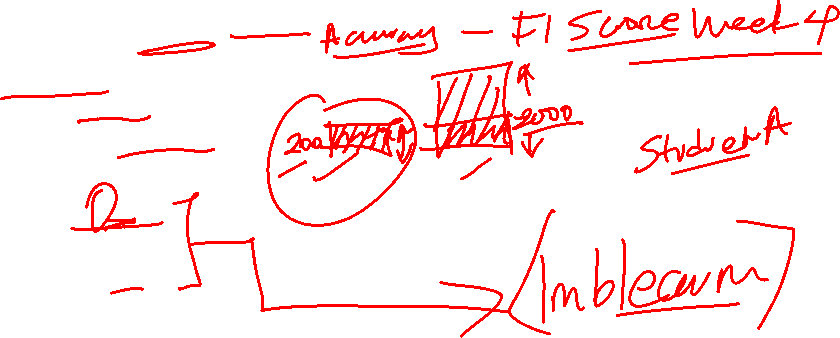 Accuracy - F1 Score Week 4
200
2000
Student A
D
(Imblearn)